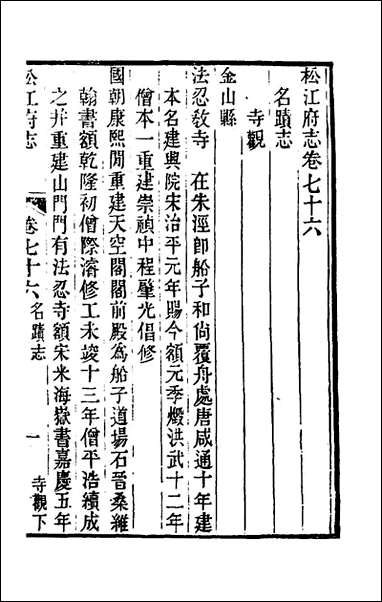 松江府志卷七十六
名蹟志
寺觀
金山縣
法忍敎寺　在朱涇卽船子和尙覆舟處唐咸通十年建
本名建興院宋治平元年賜今額元季燬洪武十二年
僧本一重建崇禎中程肇光倡修
國朝康熙閒重建天空閣閣前殿為船子道場石晉桑維
翰書額乾隆初僧際濬修工未竣十三年僧平浩續成
之幷重建山門門有法忍寺額宋米海嶽書嘉慶五年
松江府志　卷七十六　名蹟志　一　寺觀下